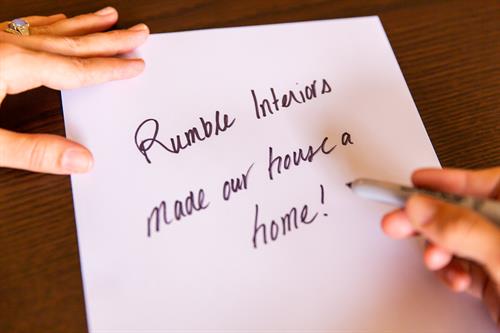 Rumble Interiors
made our house a
home!